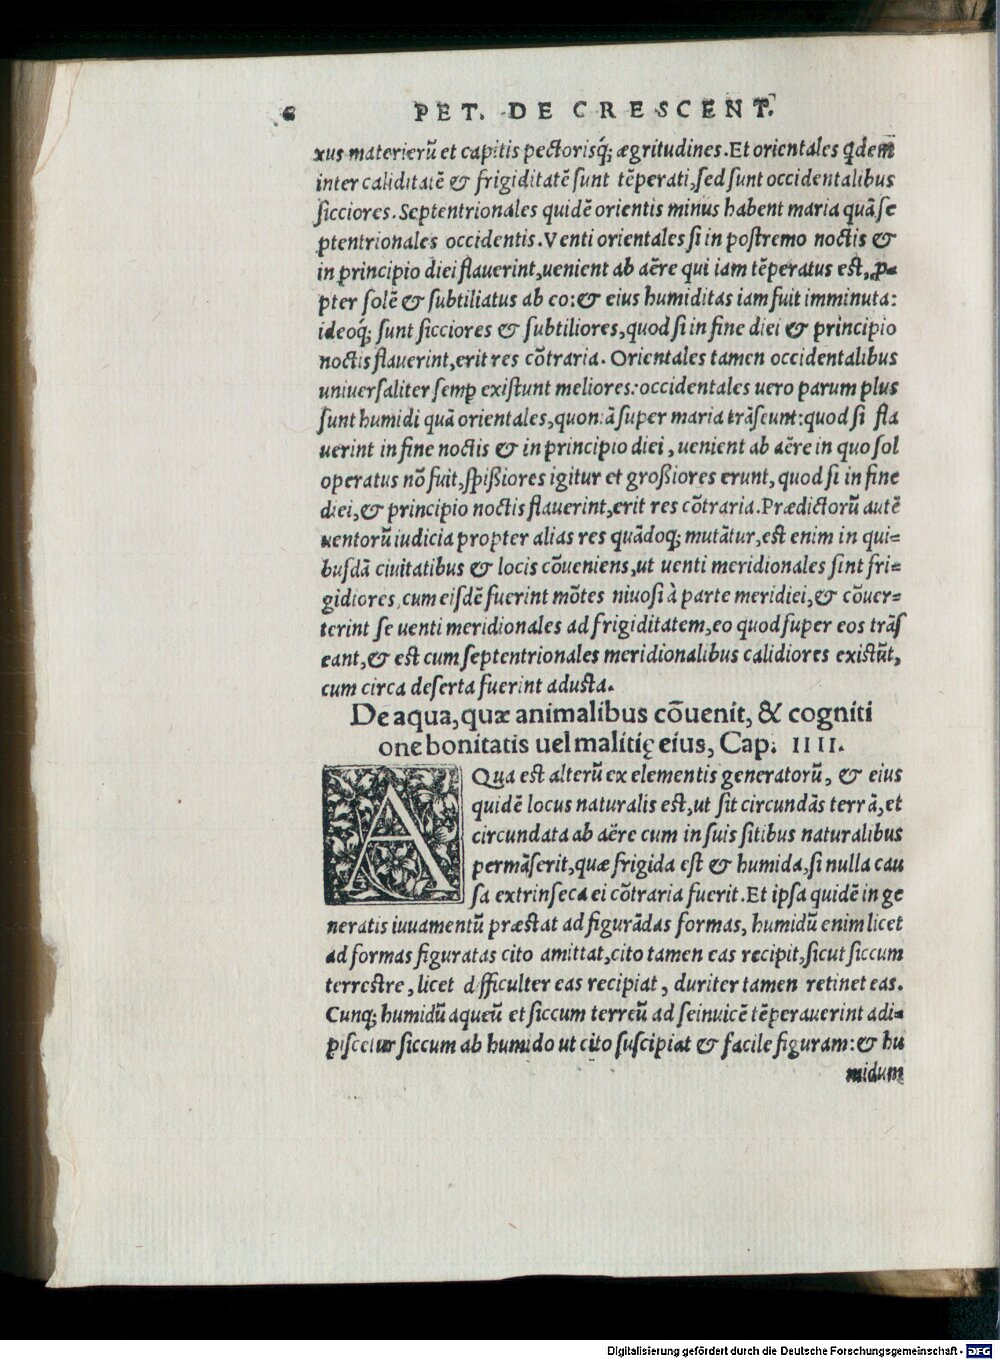 6 PET. DE CRESCENT.
xus materierũ et capitis pectorisq́; ægritudines. Et orientales qdem
inter caliditatẽ & frigiditatẽ sunt tẽperati, sed sunt occidentalibus
sicciores. Septentrionales quidẽ orientis minus habent maria quã se
ptentrionales occidentis. Venti orientales si in postremo noctis &
in principio diei flauerint, uenient ab aëre qui iam tẽperatus est, p-
pter solẽ & subtiliatus ab eo: & eius humiditas iam fuit imminuta:
ideoq́; sunt sicciores & subtiliores, quod si in fine diei & principio
noctis flauerint, erit res cõtraria. Orientales tamen occidentalibus
uniuersaliter semp existunt meliores: occidentales uero parum plus
sunt humidi quã orientales, quoniã super maria trãseunt: quod si fla
uerint in fine noctis & in principio diei, uenient ab aëre in quo sol
operatus nõ fuit, spißiores igitur et großiores erunt, quod si in fine
diei, & principio noctis flauerint, erit res cõtraria. Prædictorũ autẽ
uentorũ iudicia propter alias res quãdoq; mutãtur, est enim in qui=
busdã ciuitatibus & locis cõueniens, ut uenti meridionales sint fri=
gidiores, cum eisdẽ fuerint mõtes niuosi à parte meridiei, & cõuer=
terint se uenti meridionales ad frigiditatem, eo quod super eos trãs
eant, & est cum septentrionales meridionalibus calidiores existũt,
cum circa deserta fuerint adusta.
De aqua, quæ animalibus cõuenit, & cogniti
one bonitatis uel malitię eius, Cap. IIII.
AQua est alterũ ex elementis generatorũ, & eius
quidẽ locus naturalis est, ut sit circundãs terrã, et
circundata ab aëre cum in suis sitibus naturalibus
permãserit, quæ frigida est & humida, si nulla cau
sa extrinseca ei cõtraria fuerit. Et ipsa quidẽ in ge
neratis iuuamentũ præstat ad figurãdas formas, humidũ enim licet
ad formas figuratas cito amittat, cito tamen eas recipit, sicut siccum
terrestre, licet difficulter eas recipiat, duriter tamen retinet eas.
Cunq; humidũ aqueũ et siccum terreũ ad seinuicẽ tẽperauerint adi=
piscetur siccum ab humido ut cito suscipiat & facile figuram: & hu
midum
Digitalisierung gefördert durch die Deutsche Forschungsgemeinschaft - DFG